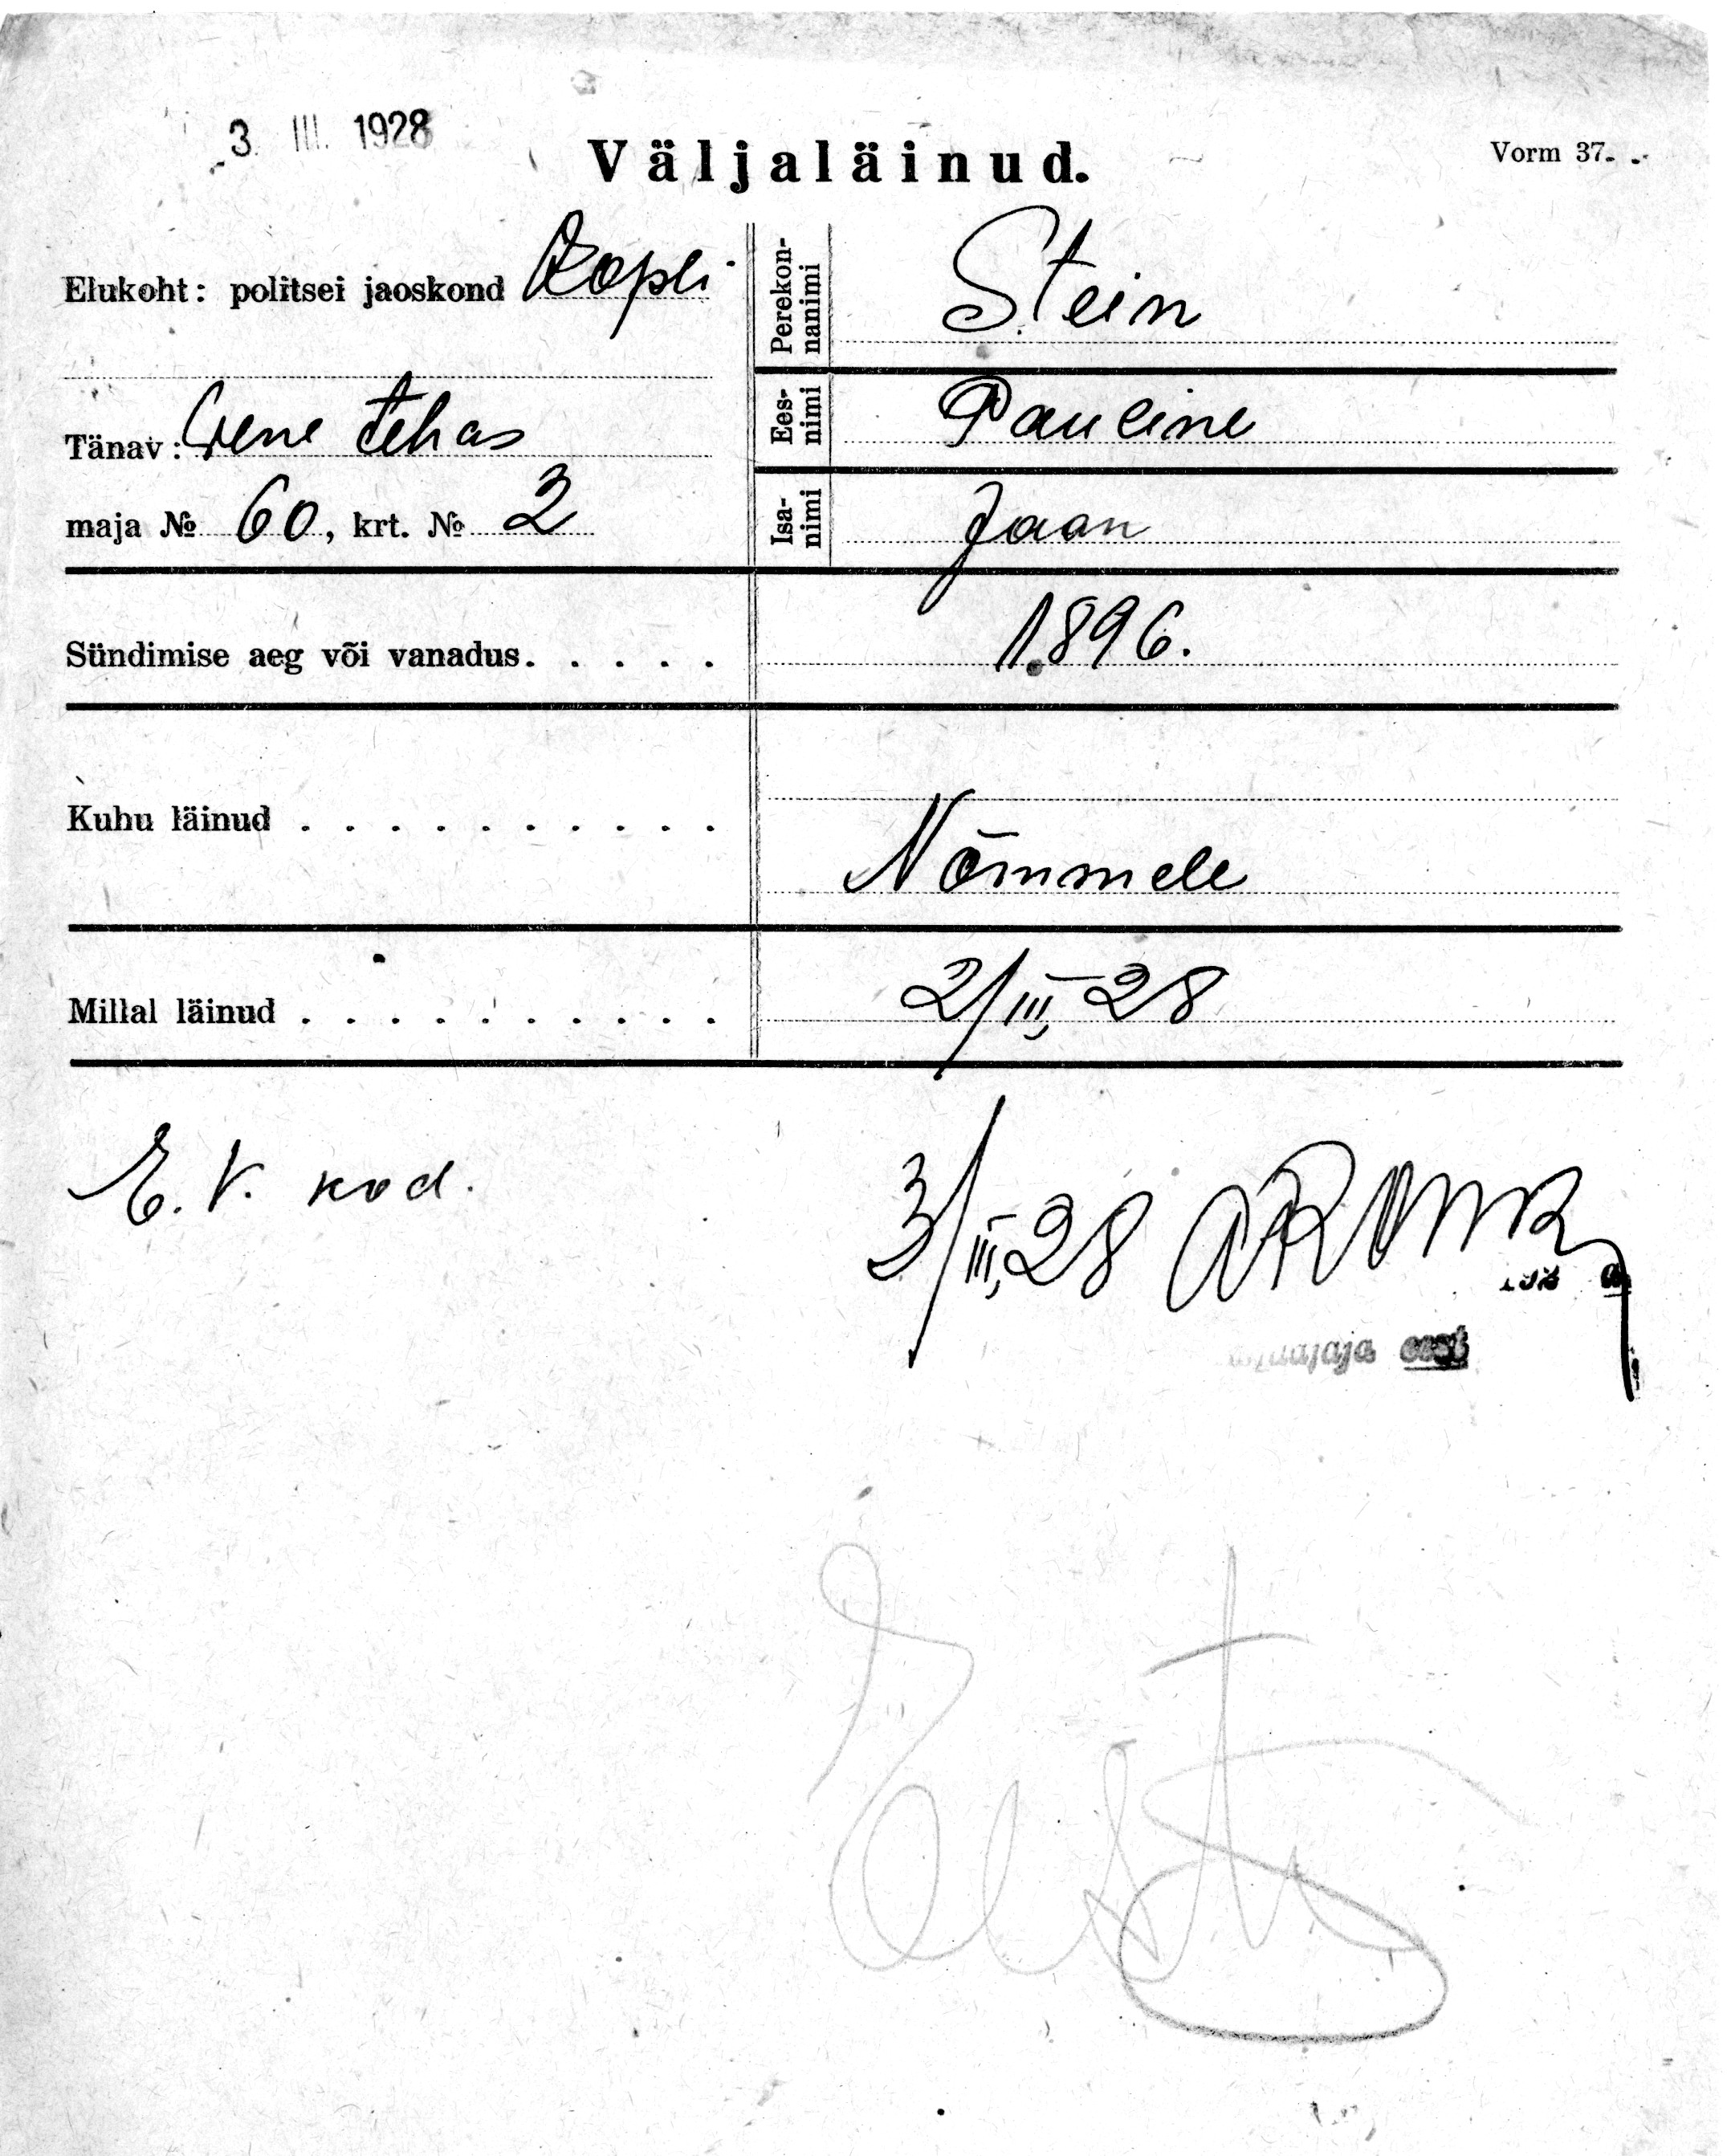 3. III. 1928
Väljaläinud.
Vorm 37.
Elukoht: politsei jaoskond Kopli
Tänav: Vene tehas
maja № 60, krt. № 2
Perekon-
nanimi
Stein
Ees-
nimi
Pauline
Isa-
nimi
Jaan
Sündimise aeg või vanadus. . . . . 1896.
Kuhu läinud . . . . . . . . . . Nõmmele
Millal läinud . . . . . . . . . . 2/III, 28
E. V. kod.
3/III, 28
eest